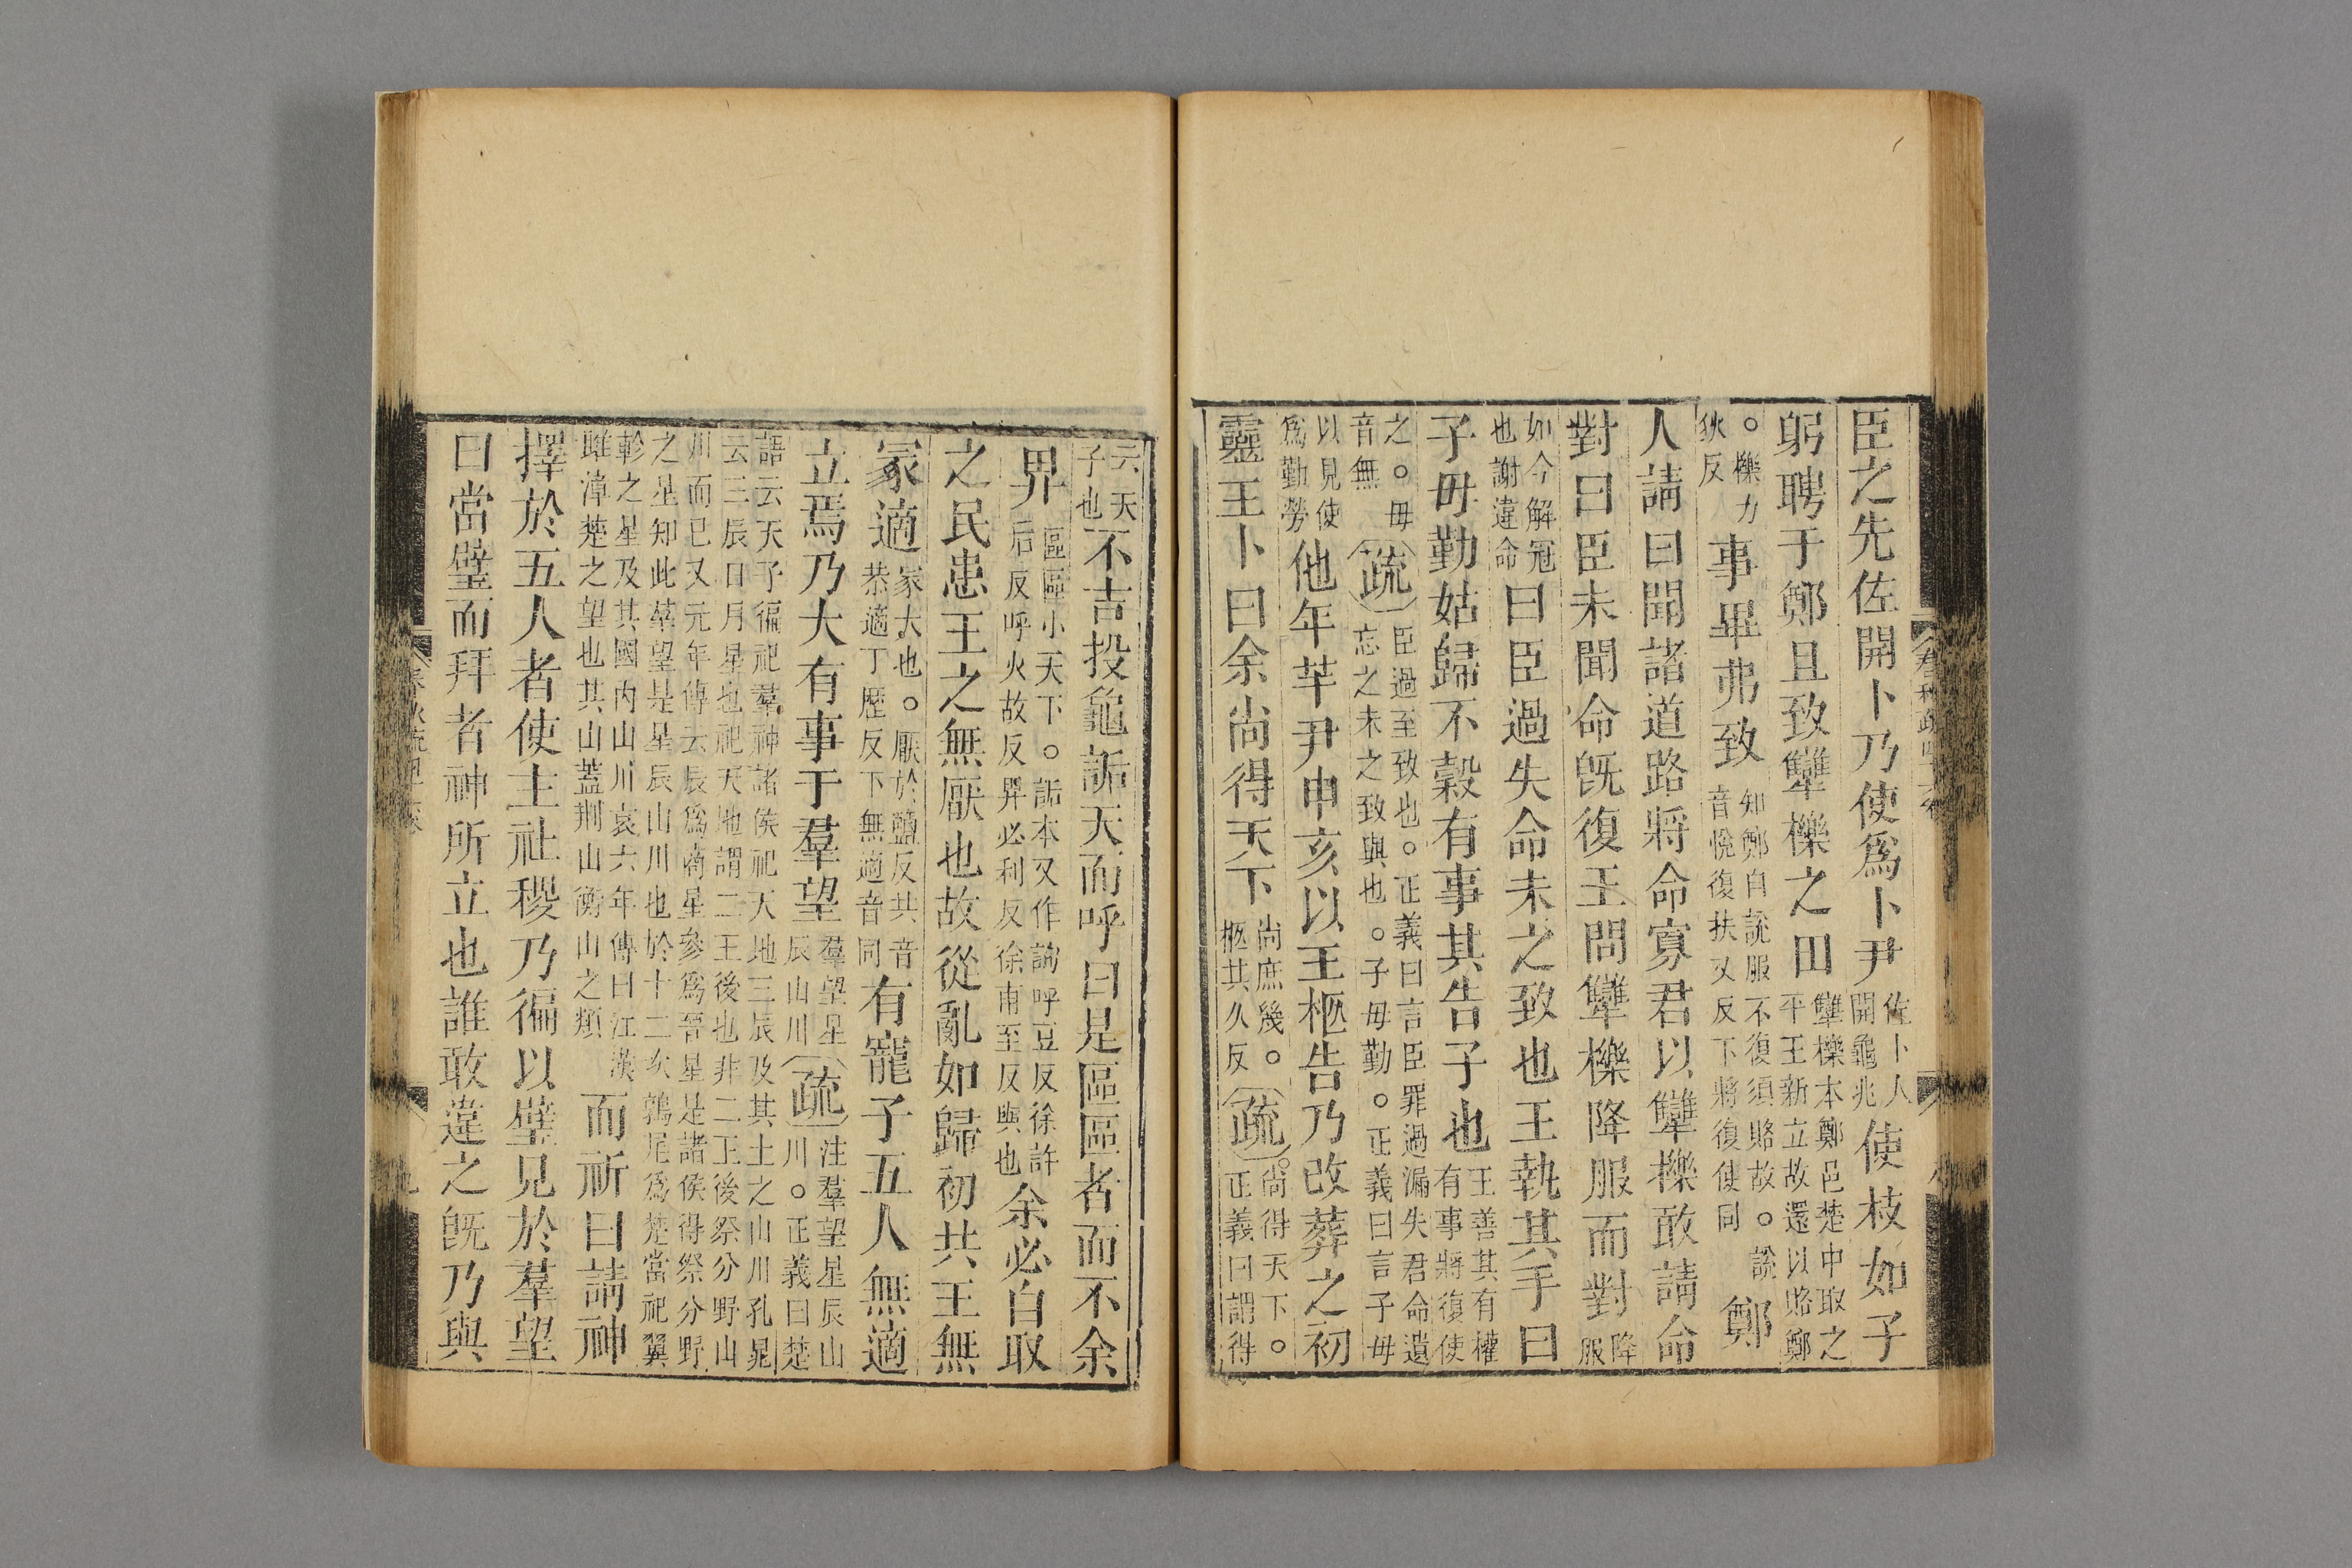 臣之先佐開卜乃使爲卜尹佐卜人開龜兆使枝如子
躬聘于鄭且致犨櫟之田犨櫟本鄭邑楚中取之平王新立故還以賂鄭
。櫟力狄反事畢弗致知鄭自說服不復須賂故。說音悅復扶又反下將復使同鄭
人請曰聞諸道路將命寡君以犨櫟敢請命
對曰臣未聞命旣復王問犨櫟降服而對降服
如今解冠也謝違命曰臣過失命未之致也王執其手曰
子毋勤姑歸不穀有事其告子也王善其有權有事將復使
之。毋音無疏臣過至致也。正義曰言臣罪過漏失君命遺忘之未之致與也。子毋勤。正義曰言子毋
以見使爲勤勞他年芋尹申亥以王柩告乃改葬之初
靈王卜曰余尚得天下尚庶幾。柩其久反疏尚得天下。正義曰謂得
云天子也不吉投龜詬天而呼曰是區區者而不余
畀區區小天下。詬本又作訽呼豆反徐許后反呼火故反畀必利反徐甫至反與也余必自取
之民患王之無厭也故從亂如歸初共王無
冢適冢大也。厭於鹽反共音恭適丁歷反下無適音同有寵子五人無適
立焉乃大有事于羣望羣望星辰山川疏注羣望星辰山川。正義曰楚
語云天子徧祀羣神諸侯祀天地三辰及其土之山川孔晁云三辰日月星也祀天地謂二王後也非二王後祭分野山
川而已又元年傳云辰爲商星參爲晉星是諸侯得祭分野之星知此羣望是星辰山川也於十二次鶉尾爲楚當祀翼
軫之星及其國內山川哀六年傳曰江漢雎漳楚之望也其山蓋荆山衡山之類而祈曰請神
擇於五人者使主社稷乃徧以璧見於羣望
曰當璧而拜者神所立也誰敢違之旣乃與